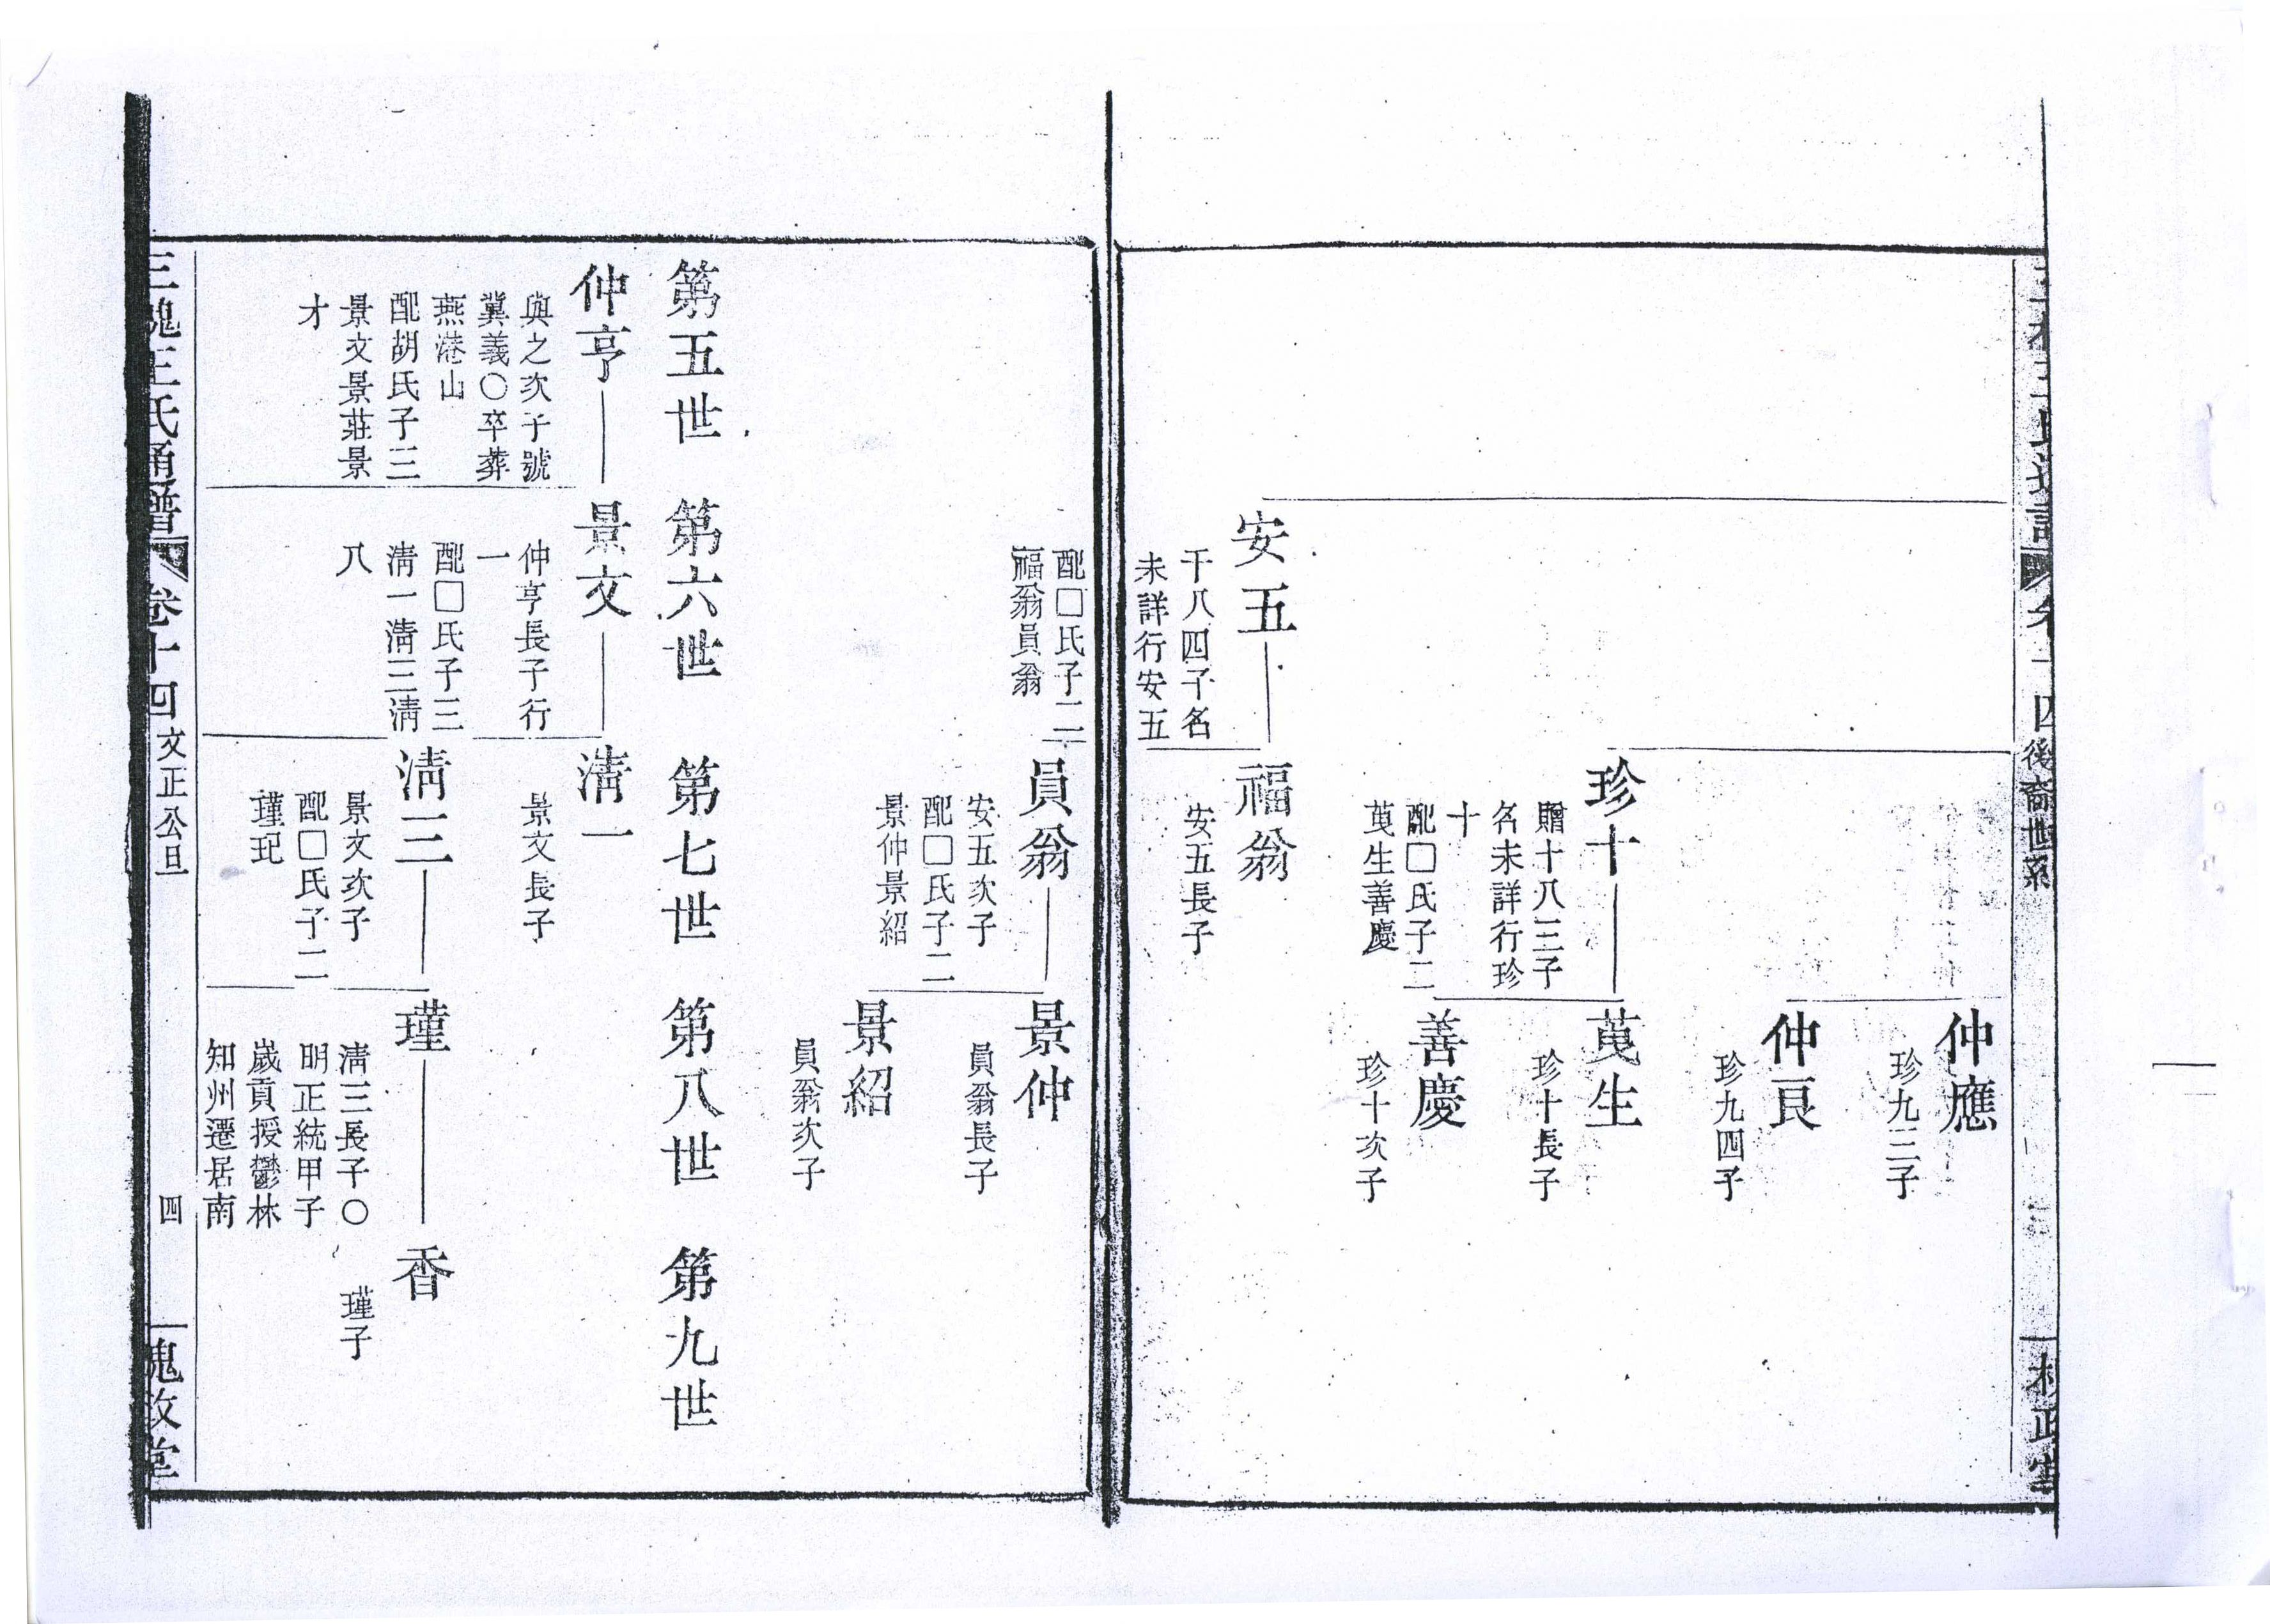 後裔世系
仲應
珍九三子
仲良
珍九四子
珍十
贈十八三子
名未詳行珍
十
配□氏子二
萸生善慶
萸生
珍十長子
善慶
珍十次子
安五
千八四子名
未詳行安五
福翁
安五長子
配□氏子二
福翁員翁
員翁
安五次子
配□氏子二
景仲景紹
景仲
員翁長子
景紹
員翁次子
第五世 第六世 第七世 第八世 第九世
仲亨
與之次子號
冀義○卒葬
燕港山
配胡氏子三
景文景莊景
才
景文
仲亨長子行
一
配□氏子三
淸一淸三淸
八
淸一
景文長子
淸三
景文次子
配□氏子二
瑾玘
瑾
淸三長子○
明正統甲子
歲貢授鬱林
知州遷居南
香
瑾子
三槐王氏通譜 卷十四 文正公旦 四 槐政堂